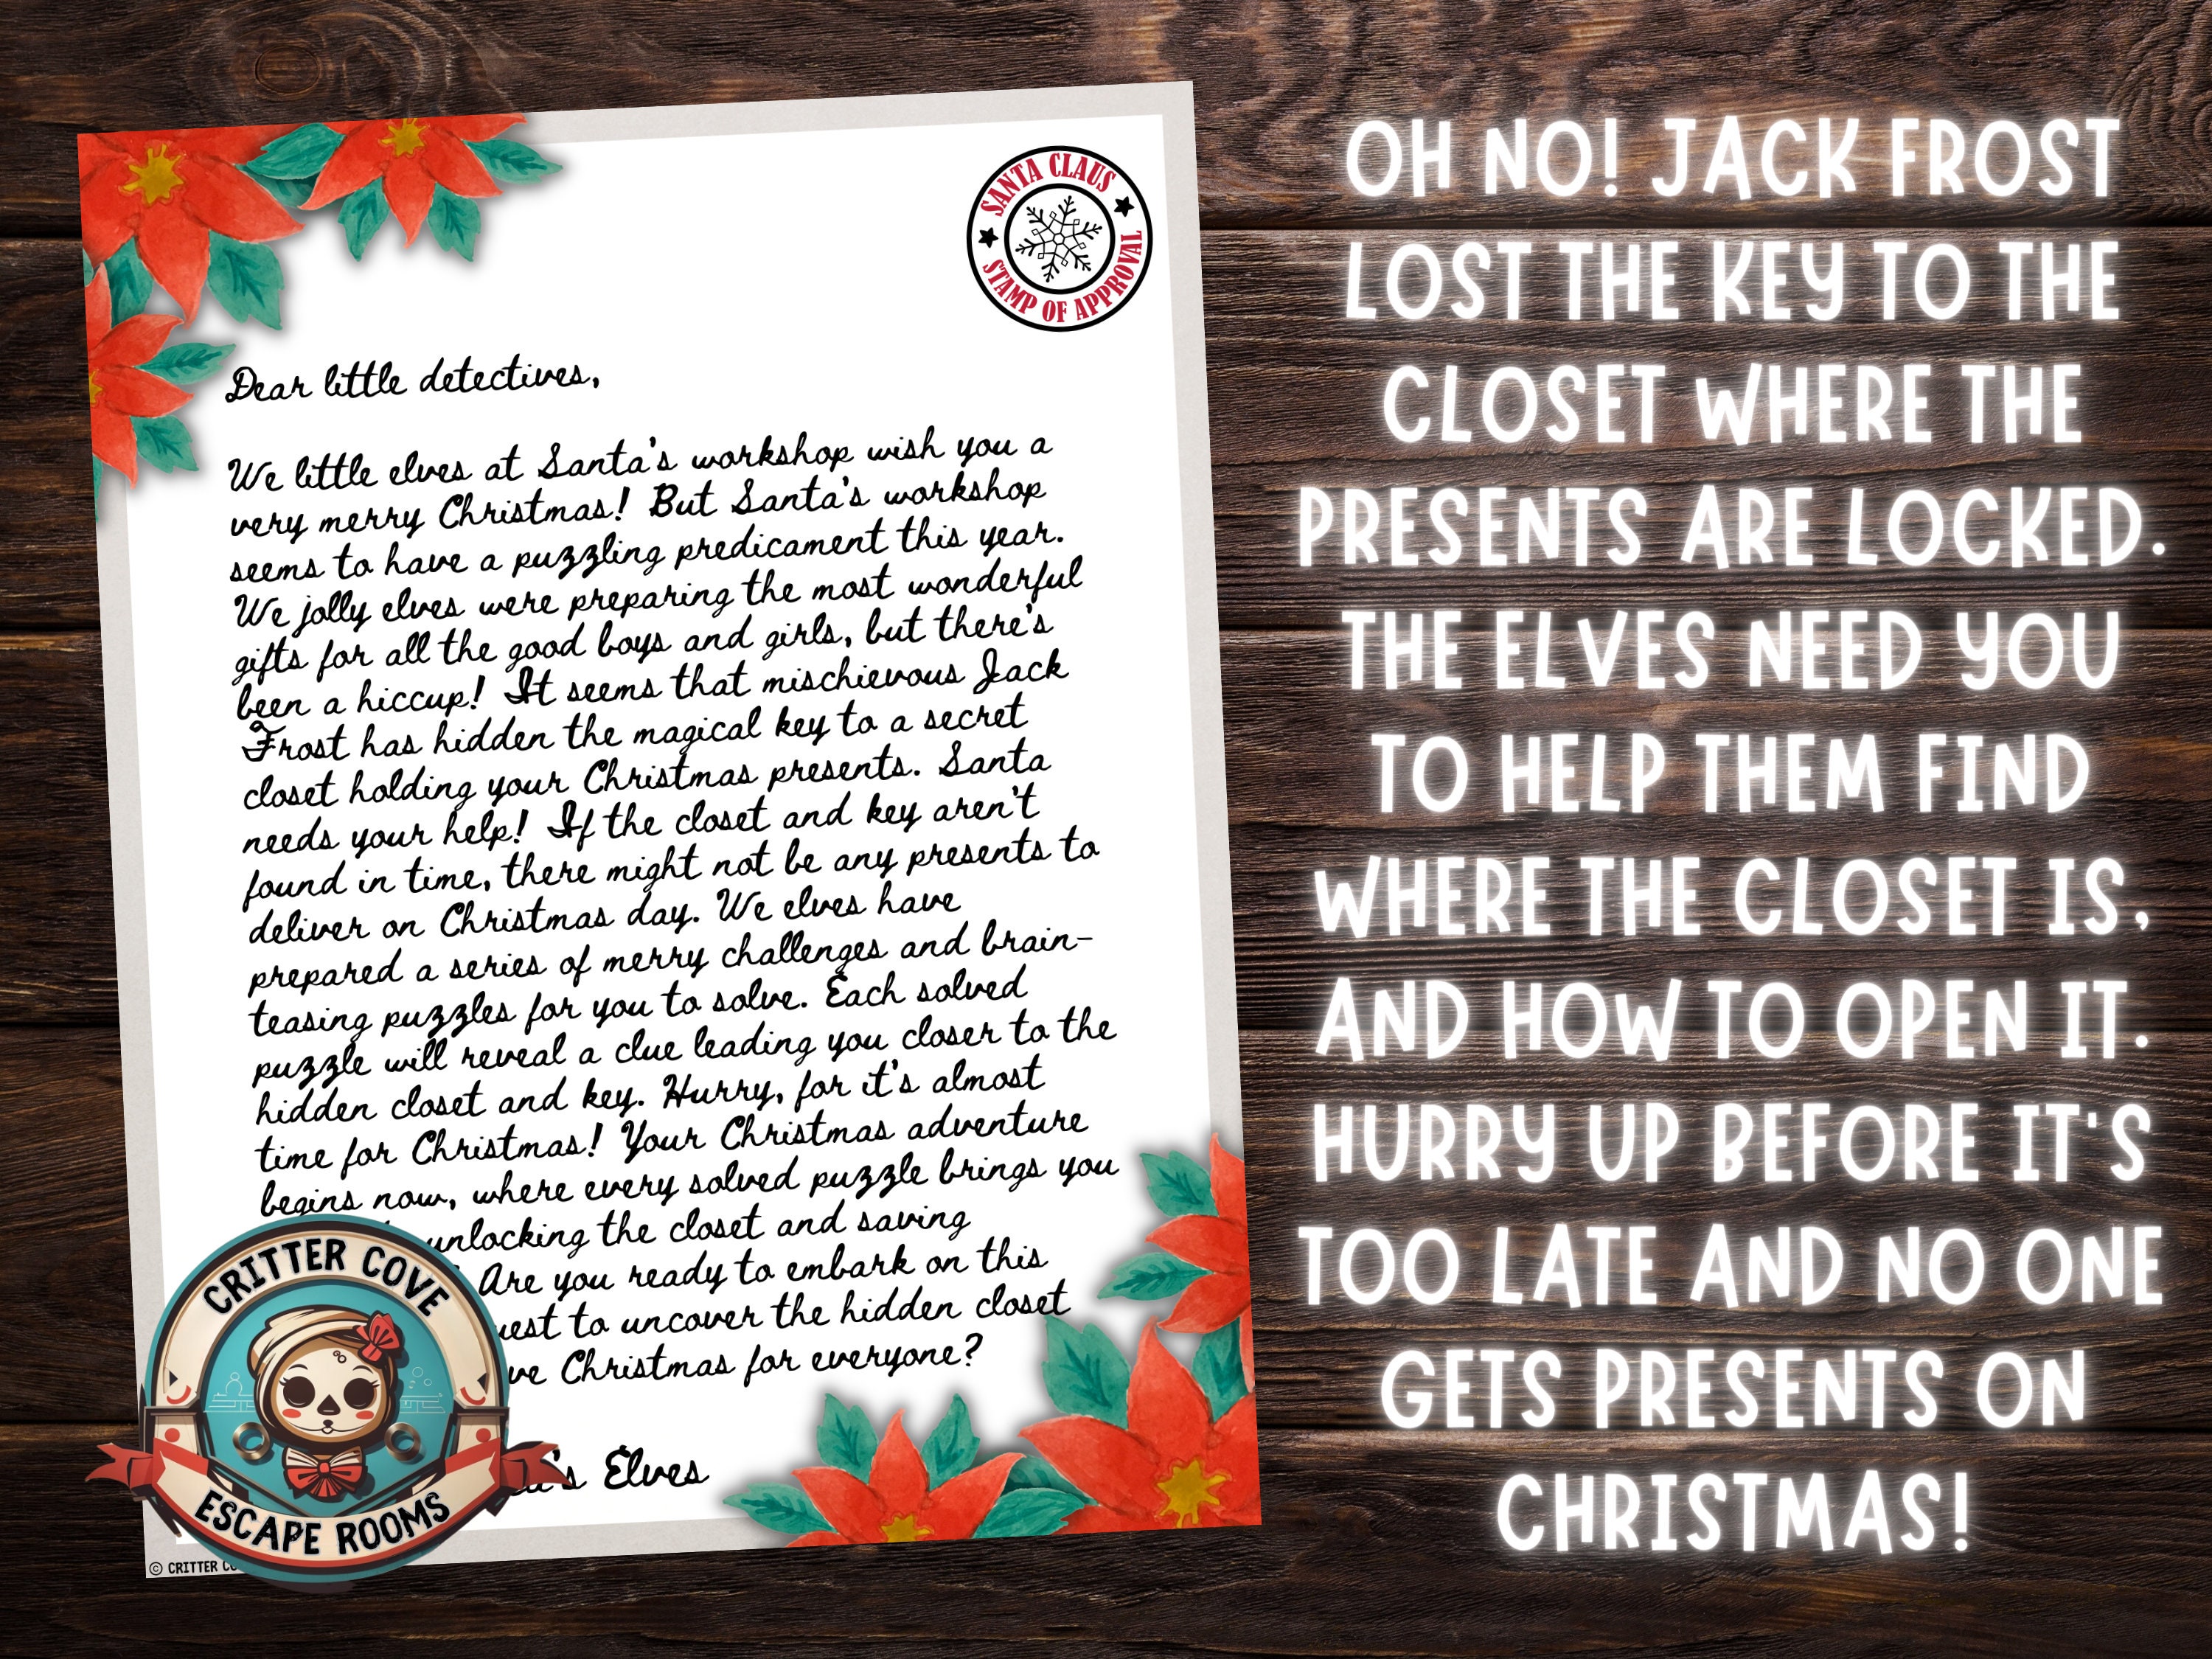 SANTA CLAUS
STAMP OF APPROVAL
Dear little detectives,
We little elves at Santa's workshop wish you a
very merry Christmas! But Santa's workshop
seems to have a puzzling predicament this year.
We jolly elves were preparing the most wonderful
gifts for all the good boys and girls, but there's
been a hiccup! It seems that mischievous Jack
Frost has hidden the magical key to a secret
closet holding your Christmas presents. Santa
needs your help! If the closet and key aren't
found in time, there might not be any presents to
deliver on Christmas day. We elves have
prepared a series of merry challenges and brain-
teasing puzzles for you to solve. Each solved
puzzle will reveal a clue leading you closer to the
hidden closet and key. Hurry, for it's almost
time for Christmas! Your Christmas adventure
begins now, where every solved puzzle brings you
unlocking the closet and saving
Are you ready to embark on this
to uncover the hidden closet
Christmas for everyone?
Elves
CRITTER COVE
ESCAPE ROOMS
© CRITTER
OH NO! JACK FROST
LOST THE KEY TO THE
CLOSET WHERE THE
PRESENTS ARE LOCKED.
THE ELVES NEED YOU
TO HELP THEM FIND
WHERE THE CLOSET IS,
AND HOW TO OPEN IT.
HURRY UP BEFORE IT'S
TOO LATE AND NO ONE
GETS PRESENTS ON
CHRISTMAS!